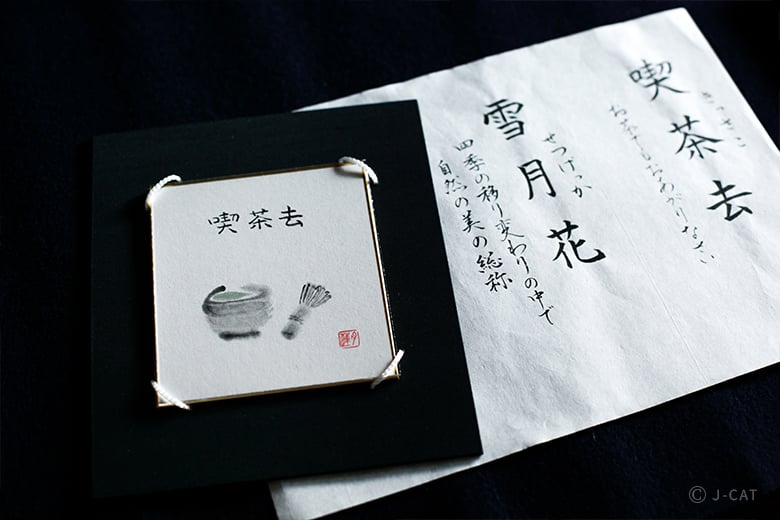 喫茶去
喫茶去
きっさこ
お茶でもおあがりなさい
雪月花
せつげっか
四季の移り変わりの中で
自然の美の総称
© J-CAT